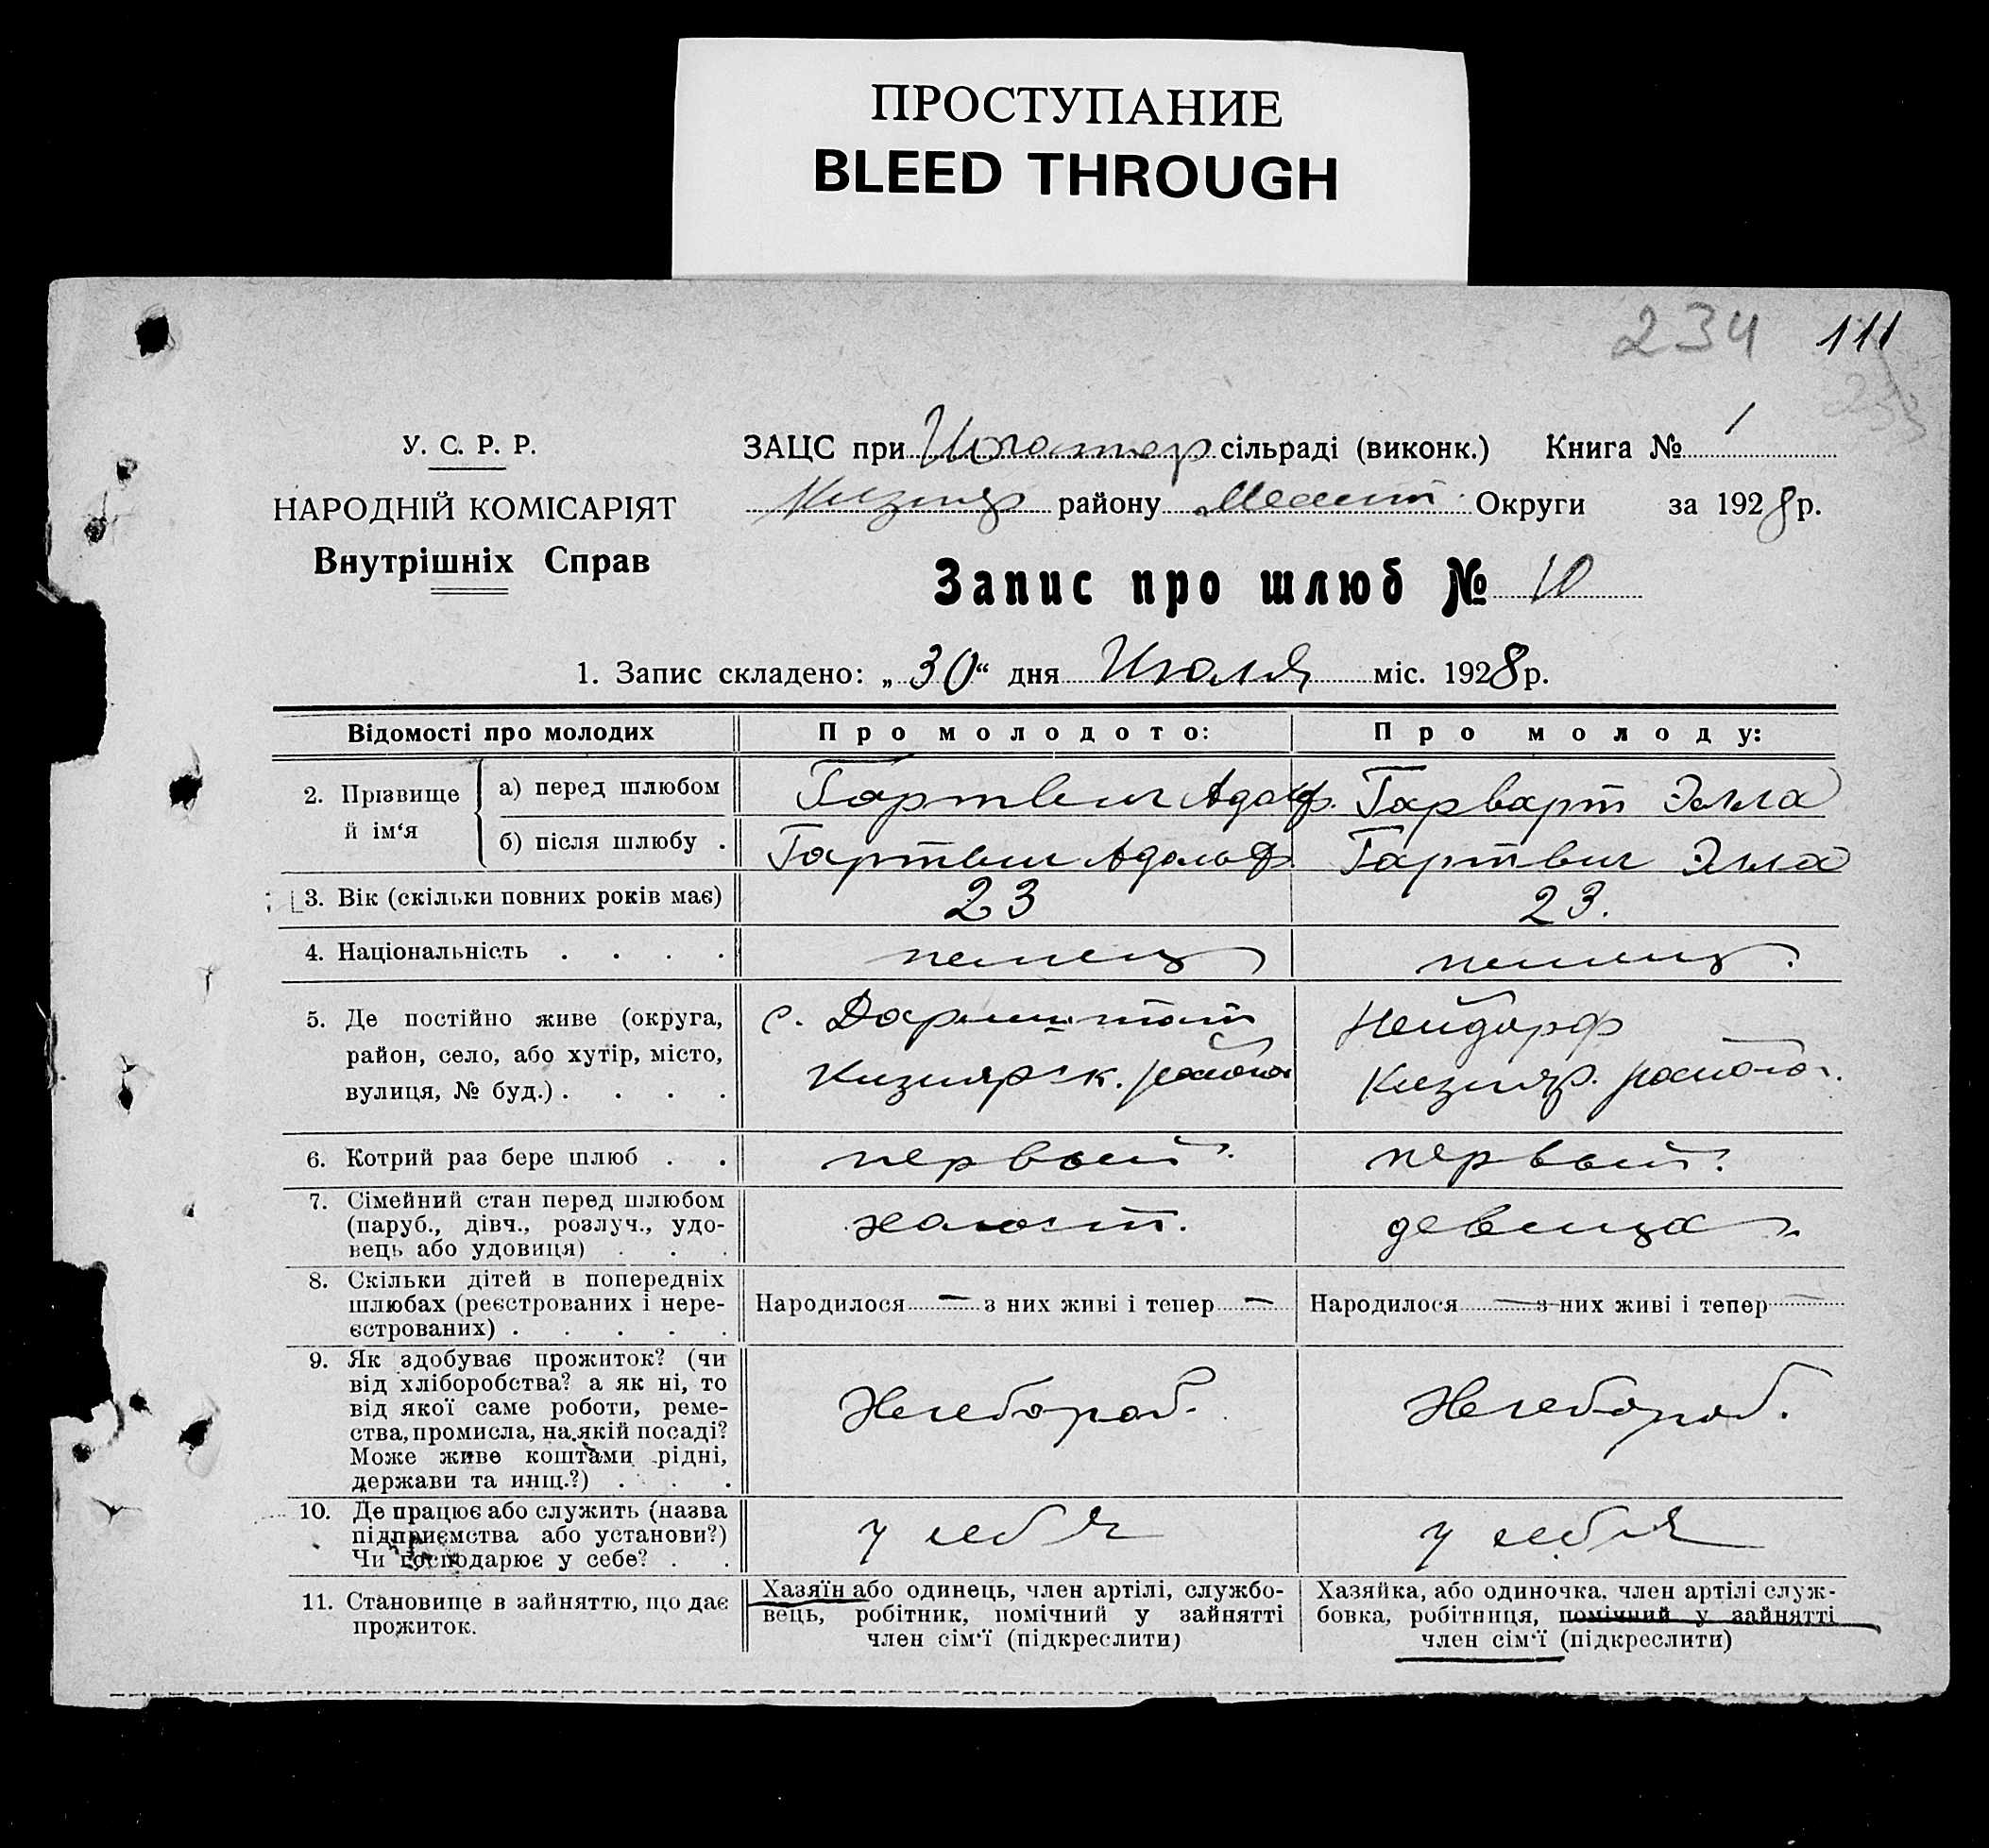 ПРОСТУПАНИЕ
BLEED THROUGH
234 111
233
У. С. Р. Р.
НАРОДНІЙ КОМІСАРІЯТ
Внутрішніх Справ
ЗАЦС при сільраді (виконк.) Книга № 1
Кизияр району Мелит. Округи за 1928 р.
Запис про шлюб № 10
1. Запис складено: „30“ дня Июля міс. 1928 р.
Відомості про молодих
Про молодого:
Про молоду:
2. Прізвище й ім‘я
а) перед шлюбом
Гартвиг Адольф. Гарварт Элла
б) після шлюбу .
Гартвиг Адольф Гартвиг Элла
3. Вік (скільки повних років має)
23
23.
4. Національність . . . .
немец
немец.
5. Де постійно живе (округа,
район, село, або хутір, місто,
вулиця, № буд.) . . . .
с. Дармштат
Кизиярск. район
Нейдорф
Кизияр. район.
6. Котрий раз бере шлюб . .
первый.
первый.
7. Сімейний стан перед шлюбом
(паруб., дівч., розлуч., удо-
вець або удовиця) . . .
холост.
девица
8. Скільки дітей в попередніх
шлюбах (реєстрованих і нере-
єстрованих) . . . . .
Народилося — з них живі і тепер —
Народилося — з них живі і тепер —
9. Як здобуває прожиток? (чи
від хліборобства? а як ні, то
від якої саме роботи, реме-
ства, промисла, на якій посаді?
Може живе коштами рідні,
держави та инщ.?) . . .
Хлебороб.
Хлебороб.
10. Де працює або служить (назва
підприємства або установи?)
Чи господарює у себе? . .
у себя
у себя
11. Становище в зайняттю, що дає
прожиток.
Хазяїн або одинець, член артілі, службо-
вець, робітник, помічний у зайнятті
член сім‘ї (підкреслити)
Хазяйка, або одиночка, член артілі служ-
бовка, робітниця, помічний у зайнятті
член сім‘ї (підкреслити)